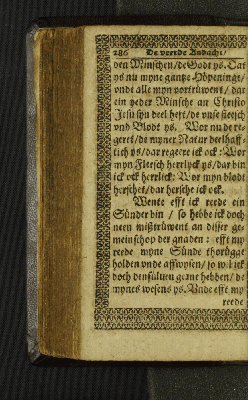 286 De veerde Andacht/
den Minschen/ de Godt ys. Dar
ys nu myne gantze Höpeninge/
unde alle myn vortruwent/ dar
ein yeder Minsche an Christo
Jesu syn deel heft/ de unse fleesch
und Blodt ys. Wor nu de re-
geret/ de myner Natur deelhaff-
tich ys/ dar regere ick ock: Wor
myn Fleesch herrlyck ys/ dar bin
ick ock herrlick: Wor myn blodt
herschet/ dar hersche ick ock.
Wente efft ick reede ein
Sünder bin / so hebbe ick doch
neen mißtruwent an disser ge-
meinschop der gnaden: efft my
reede myne Sünde thorügge
holden unde affwysen/ so wil ick
doch densulven gerne hebben/ de
mynes wesens ys. Unde efft my
reede